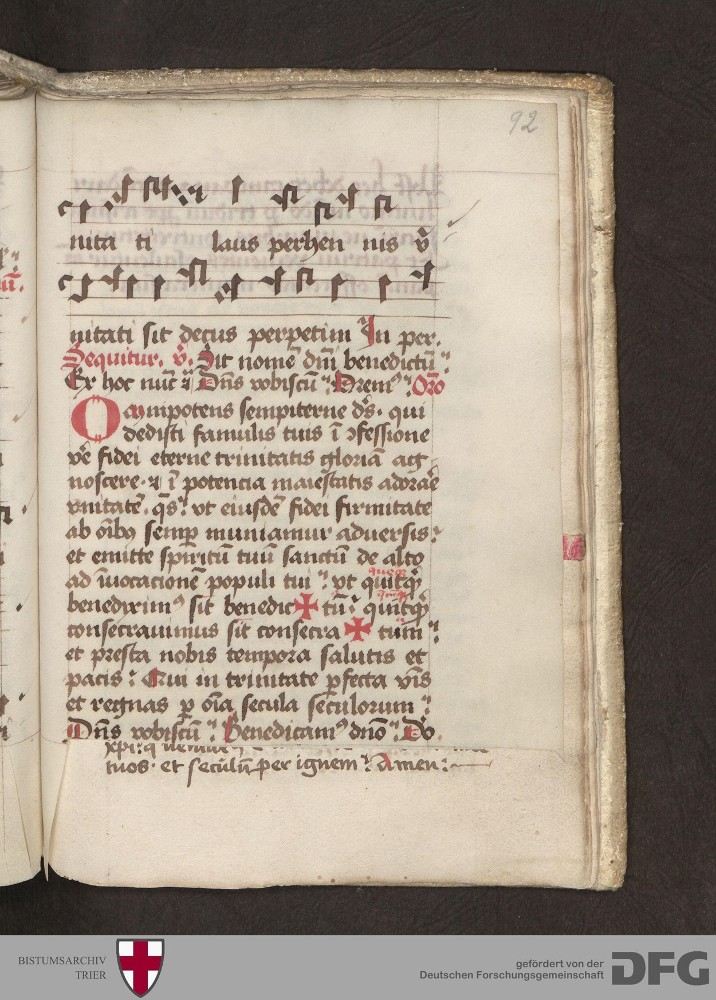 92
nita ti laus perhen nis v̊
nitati sit decus perpetim In per.
Sequitur. v̊. Sit nomē dn̄i benedictū
Ex hoc nūc ⁊ Dn̄s vobiscū Orem⁹ Oro
Omnipotens sempiterne ds̄. qui
dedisti famulis tuis ī ꝯfessione
vē fidei eterne trinitatis gloriā ag
noscere. ⁊ ī potencia maiestatis adorāe
vnitatē. qs̄. vt eiusdē fidei firmitate
ab oībꝰ semꝑ muniamur aduersis
et emitte spiritū tuū sanctū de alto
ad īuocacionē populi tui vt quitqꝫ
benedixim⁹ sit benedic✠tū quitqꝫ
consecrauimus sit consecra✠tum
et p̄sta nobis tempora salutis et
pacis Qui in trinitate ꝑfecta viĩs
et regnas ꝑ oīa secula seculorum
Dn̄s vobiscū Benedicam⁹ dno Do
tuos. et seculū per ignem Amen
BISTUMSARCHIV
TRIER
gefördert von der
Deutschen Forschungsgemeinschaft
DFG